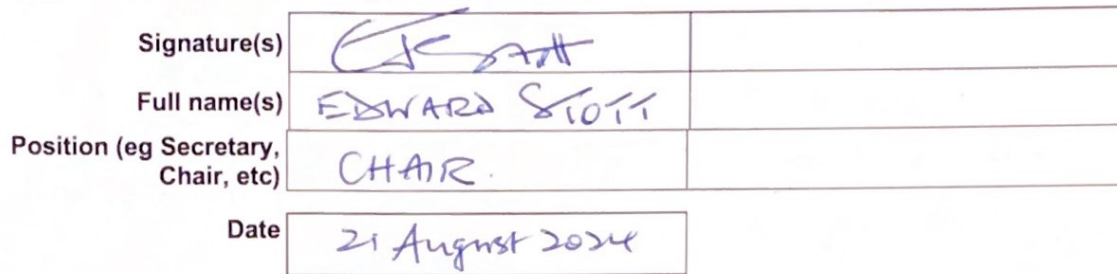 Signature(s) EJStott
Full name(s) EDWARD STOTT
Position (eg Secretary,
Chair, etc) CHAIR.
Date 21 August 2024